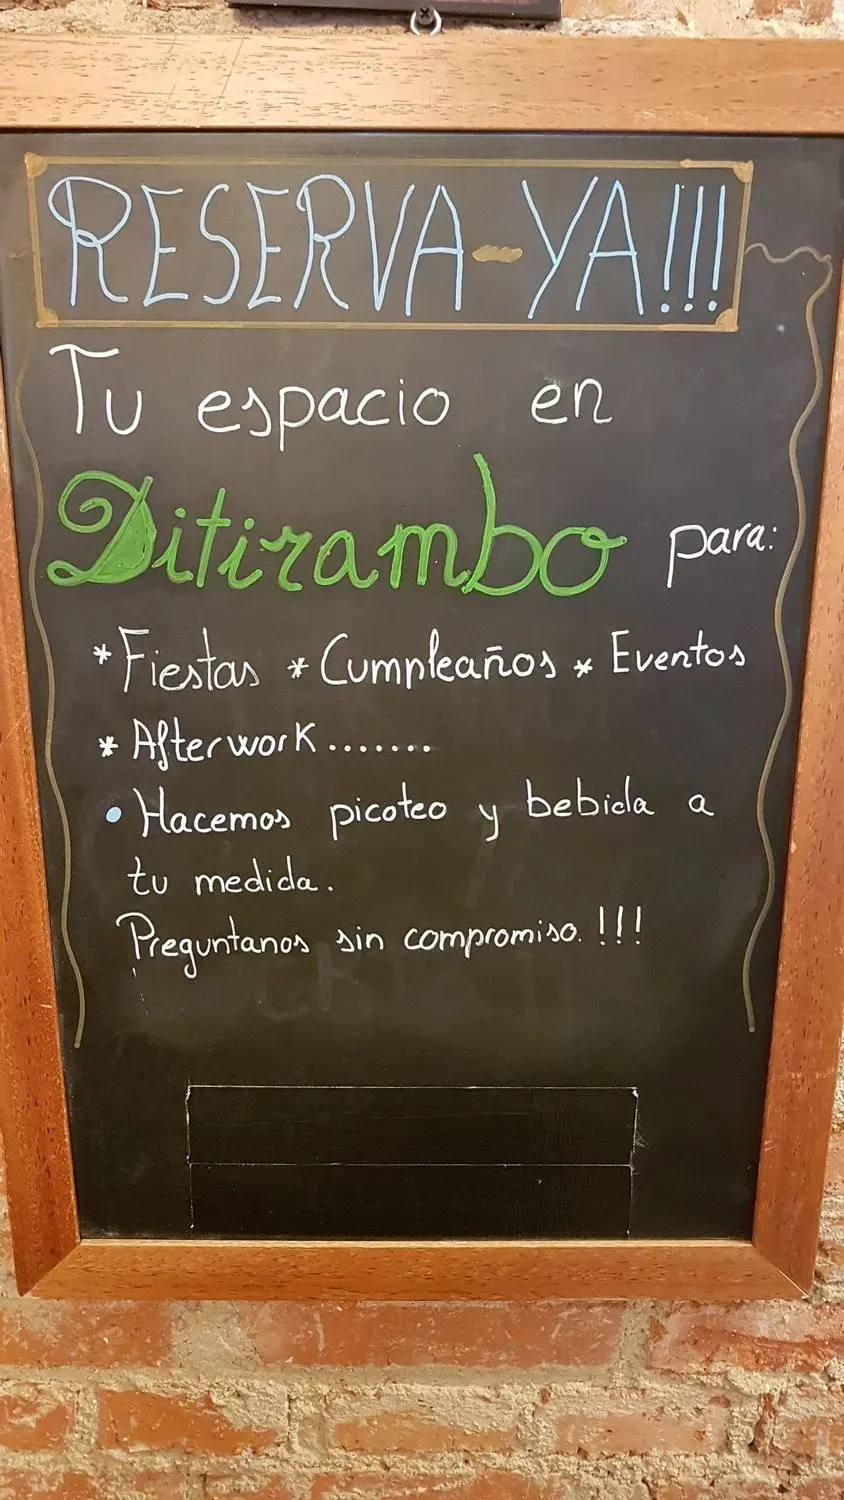 RESERVA-YA!!!
Tu espacio en
Ditirambo para:
* Fiestas * Cumpleaños * Eventos
* Afterwork.......
• Hacemos picoteo y bebida a
tu medida.
Preguntanos sin compromiso. !!!